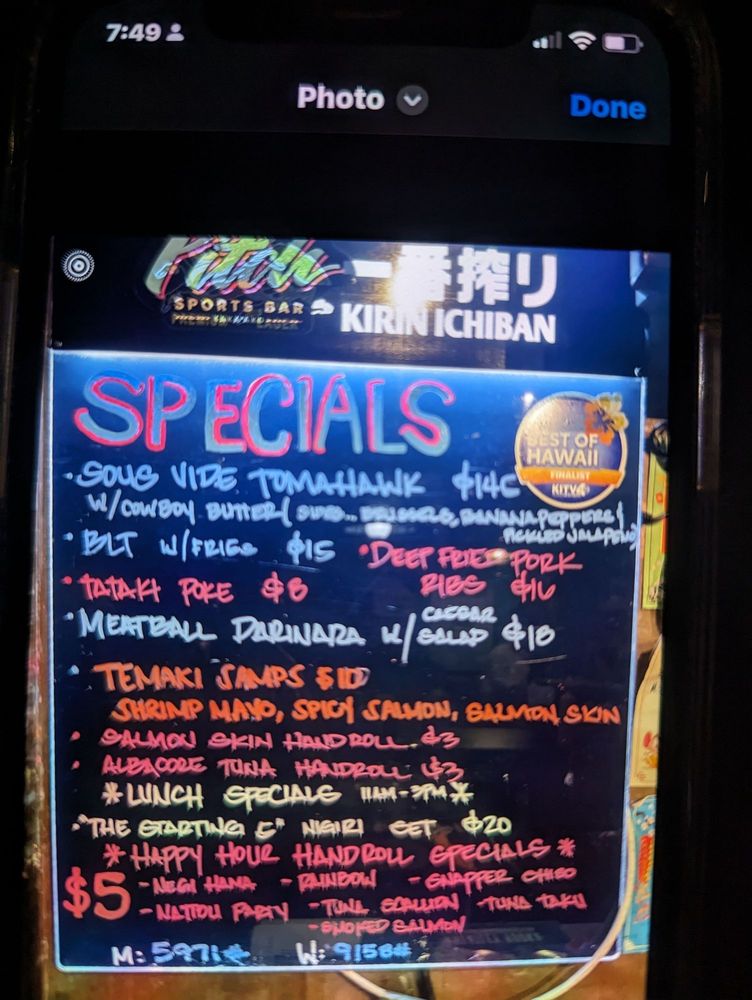 7:49
Photo
Done
Pitch
SPORTS BAR
一番搾り
KIRIN ICHIBAN
SPECIALS
BEST OF
HAWAII
FINALIST
KITV4
· SOUS VIDE TOMAHAWK $140
W/COWBOY BUTTER ( BRUSSELS, BANANA PEPPERS &
PICKLED JALAPENO)
· BLT W/FRIES $15
· DEEP FRIED PORK
RIBS $16
· TATAKI POKE $8
· MEATBALL DARINARA W/ CAESAR
SALAD $18
· TEMAKI SAMPS $10
SHRIMP MAYO, SPICY SALMON, SALMON SKIN
· SALMON SKIN HANDROLL $3
· ALBACORE TUNA HANDROLL $3
* LUNCH SPECIALS 11AM-3PM *
· "THE STARTING 5" NIGIRI SET $20
* HAPPY HOUR HANDROLL SPECIALS *
$5
- NEGI HAMA - RAINBOW - SNAPPER CHISO
- NATTOU PARTY - TUNA SCALLION - TUNA TAKU
- SMOKED SALMON
M: 5971# W: 9158#